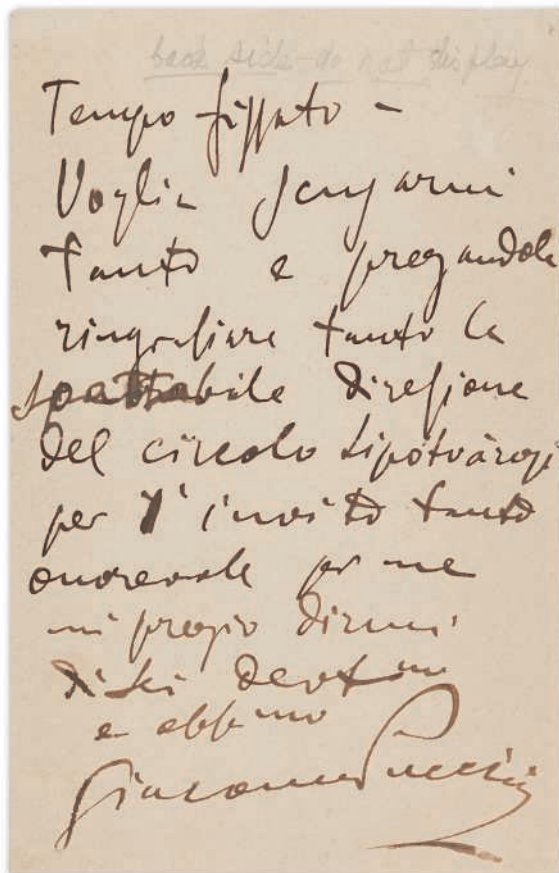 back side - do not display
Tempo fissato -
Voglia scusarmi
tanto e pregandola
ringraziare tanto la
spettabile direzione
del circolo Lipótvárosi
per l'invito tanto
onorevole per me
mi pregio dirmi
di Lei devotmo
e obbmo
Giacomo Puccini